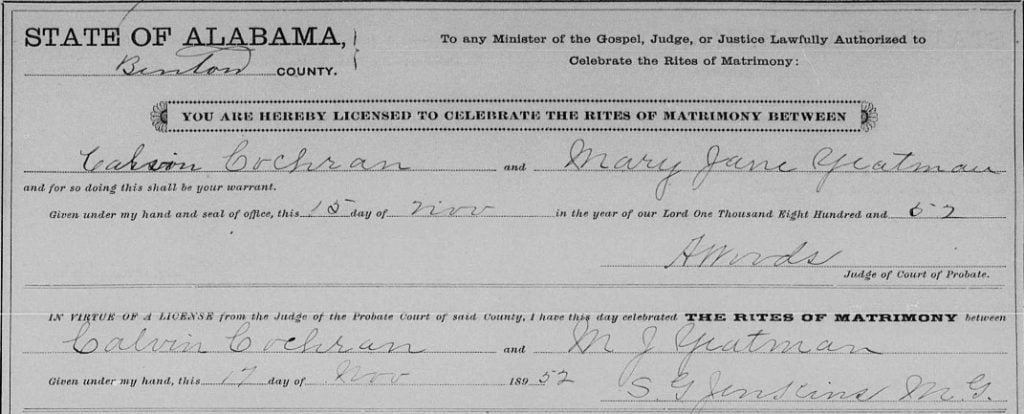 STATE OF ALABAMA,
Benton COUNTY.
To any Minister of the Gospel, Judge, or Justice Lawfully Authorized to
Celebrate the Rites of Matrimony:
YOU ARE HEREBY LICENSED TO CELEBRATE THE RITES OF MATRIMONY BETWEEN
Calvin Cochran and Mary Jane Yeatman
and for so doing this shall be your warrant.
Given under my hand and seal of office, this 15 day of Nov in the year of our Lord One Thousand Eight Hundred and 52
A Woods
Judge of Court of Probate.
IN VIRTUE OF A LICENSE from the Judge of the Probate Court of said County, I have this day celebrated THE RITES OF MATRIMONY between
Calvin Cochran and M J Yeatman
Given under my hand, this 17 day of Nov 18952
S. G Jenkins M.G.